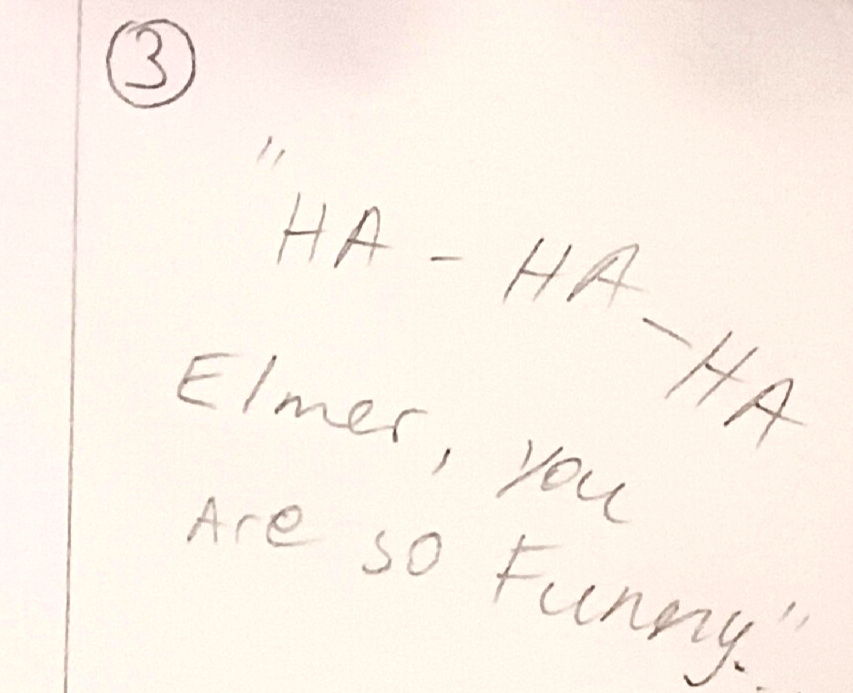 3
"HA - HA - HA
Elmer, you
Are so Funny."